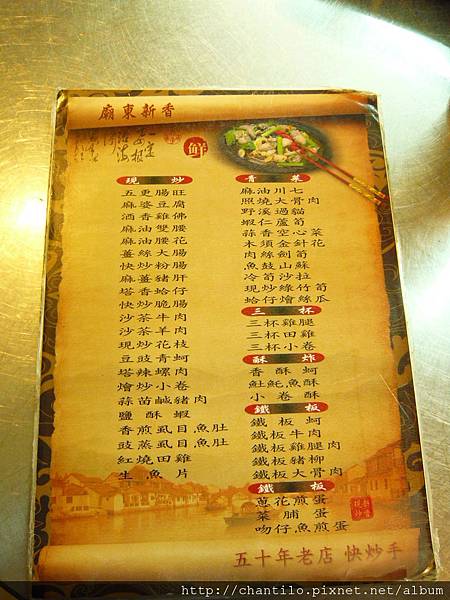 廟東新香
鮮
現炒
五更腸旺
麻婆豆腐
酒香雞佛
麻油雙腰
麻油腰花
薑絲大腸
快炒粉腸
麻薑豬肝
塔香蛤仔
快炒脆腸
沙茶牛肉
沙茶羊肉
現炒花枝
豆豉青蚵
塔辣螺肉
燴炒小卷
蒜苗鹹豬肉
鹽酥蝦
香煎虱目魚肚
豉蒸虱目魚肚
紅燒田雞
生魚片
青菜
麻油川七
照燒大骨肉
野溪過貓
蝦仁蘆筍
蒜香空心菜
木須金針花
肉絲劍筍
魚鼓山蘇
冷筍沙拉
現炒綠竹筍
蛤仔燴絲瓜
三杯
三杯雞腿
三杯田雞
三杯小卷
酥炸
香酥蚵
魠魚酥
小卷酥
鐵板
鐵板蚵
鐵板牛肉
鐵板雞腿肉
鐵板豬柳
鐵板大骨肉
鐵板
蔥花煎蛋
菜脯蛋
吻仔魚煎蛋
五十年老店 快炒手
http://chantilo.pixnet.net/album